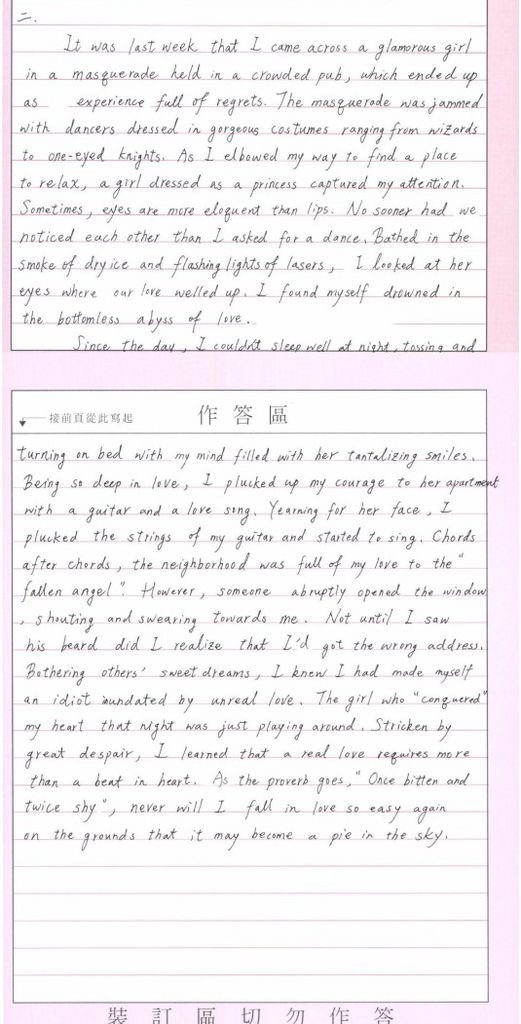 二.
It was last week that I came across a glamorous girl
in a masquerade held in a crowded pub, which ended up
as experience full of regrets. The masquerade was jammed
with dancers dressed in gorgeous costumes ranging from wizards
to one-eyed knights. As I elbowed my way to find a place
to relax, a girl dressed as a princess captured my attention.
Sometimes, eyes are more eloquent than lips. No sooner had we
noticed each other than I asked for a dance. Bathed in the
smoke of dry ice and flashing lights of lasers, I looked at her
eyes where our love welled up. I found myself drowned in
the bottomless abyss of love.
Since the day, I couldn't sleep well at night, tossing and
接前頁從此寫起
作答區
turning on bed with my mind filled with her tantalizing smiles.
Being so deep in love, I plucked up my courage to her apartment
with a guitar and a love song. Yearning for her face, I
plucked the strings of my guitar and started to sing. Chords
after chords, the neighborhood was full of my love to the "
fallen angel". However, someone abruptly opened the window
, shouting and swearing towards me. Not until I saw
his beard did I realize that I'd got the wrong address.
Bothering others' sweet dreams, I knew I had made myself
an idiot inundated by unreal love. The girl who "conquered"
my heart that night was just playing around. Stricken by
great despair, I learned that a real love requires more
than a beat in heart. As the proverb goes, "Once bitten and
twice shy", never will I fall in love so easy again
on the grounds that it may become a pie in the sky.
裝訂區切勿作答